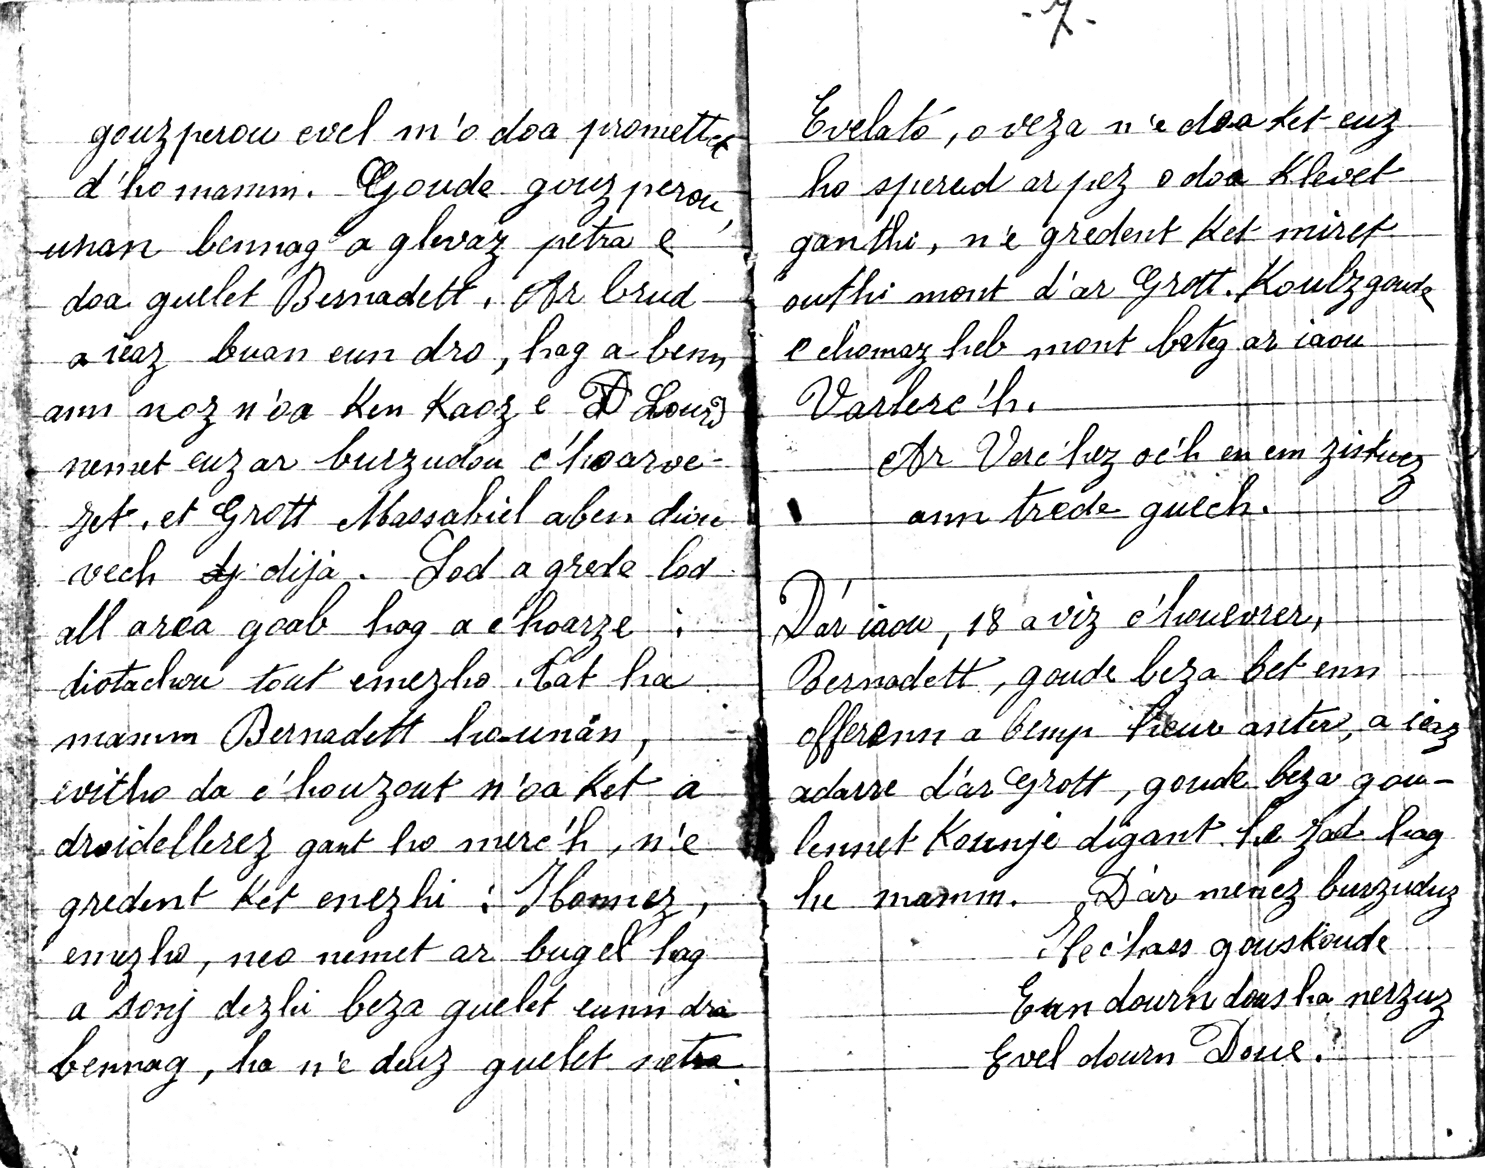 gouzperou evel m'o doa promettet
d'ho mamm. Goude gouzperou,
unan bennag a glevaz petra e
doa guelet Bernadett. Ar brud
a ieaz buan eun dro, hag a benn
ann noz n'oa ken kaoz e Lourd
nemet euz ar burzudou c'hoarve-
zet, et Grott Massabiel aben diou
vech dija. Lod a grede lod
all area goab hag a c'hoarze :
diotachou tout emezho. Tat ha
mamm Bernadett ho-unan,
evitho da c'houzout n'oa ket a
droidellerez gant ho merc'h, n'e
gredent ket enezhi : Honnez,
emezho, neo nemet ar bugel hag
a sonj dezhi beza guelet eunn dra
bennag, ha n'e deuz guelet netra.
-7-
Evelato, o veza n'e doa ket euz
ho spered ar pez o doa klevet
ganthi, n'e gredent ket miret
outhi mont d'ar Grott. Koulzgoude
e chomaz heb mont beteg ar iaou
Varlerc'h.
Ar Verc'hez oc'h en em ziskuez
ann trede guech.
D'ar iaou, 18 a viz c'houevrer,
Bernadett, goude beza bet enn
offerenn a bemp heur anter, a ieaz
adarre d'ar Grott, goude beza gou-
lennet kounje digant he zad hag
he mamm. D'ar menez burzuduz
He c'hass gouskoude
Eun dourn dous ha nerzuz
Evel dourn Doue.